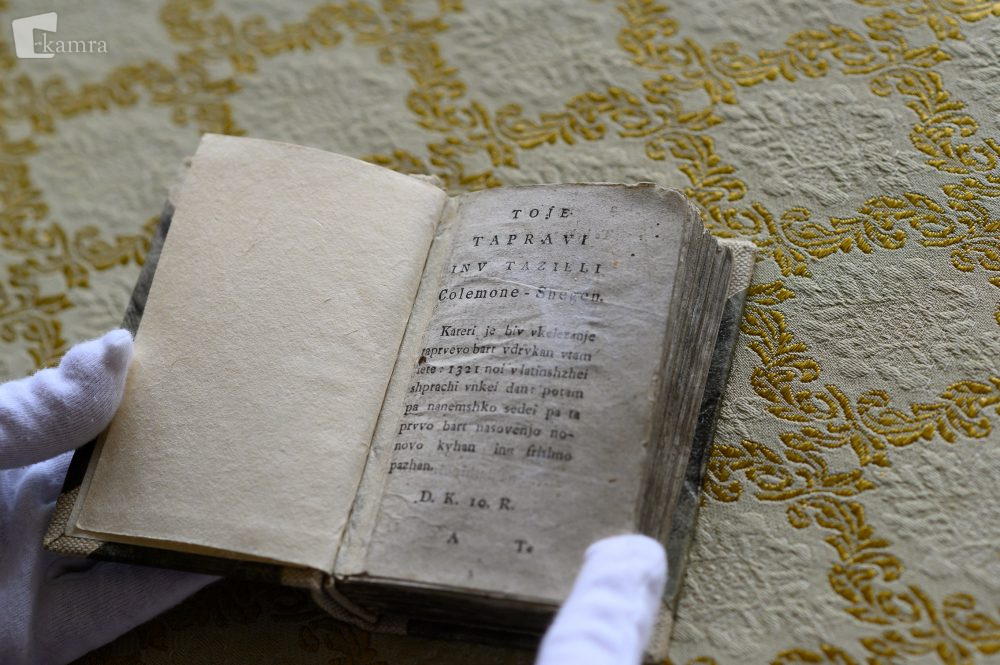 kamra
TOJE
TAPRAVI
INV TAZELLI
Colemone-Shegen.
Kateri je biv vkelezanje
taprvevo bart vdrvkan vtam
lete: 1321 noi vlatinshzhei
shprachi vnkei dan: potam
pa nanemshko sedei pa ta
prvvo bart nasovenjo no-
novo kvhan inu frishno
pazhan.
D. K. 10. R.
A Te